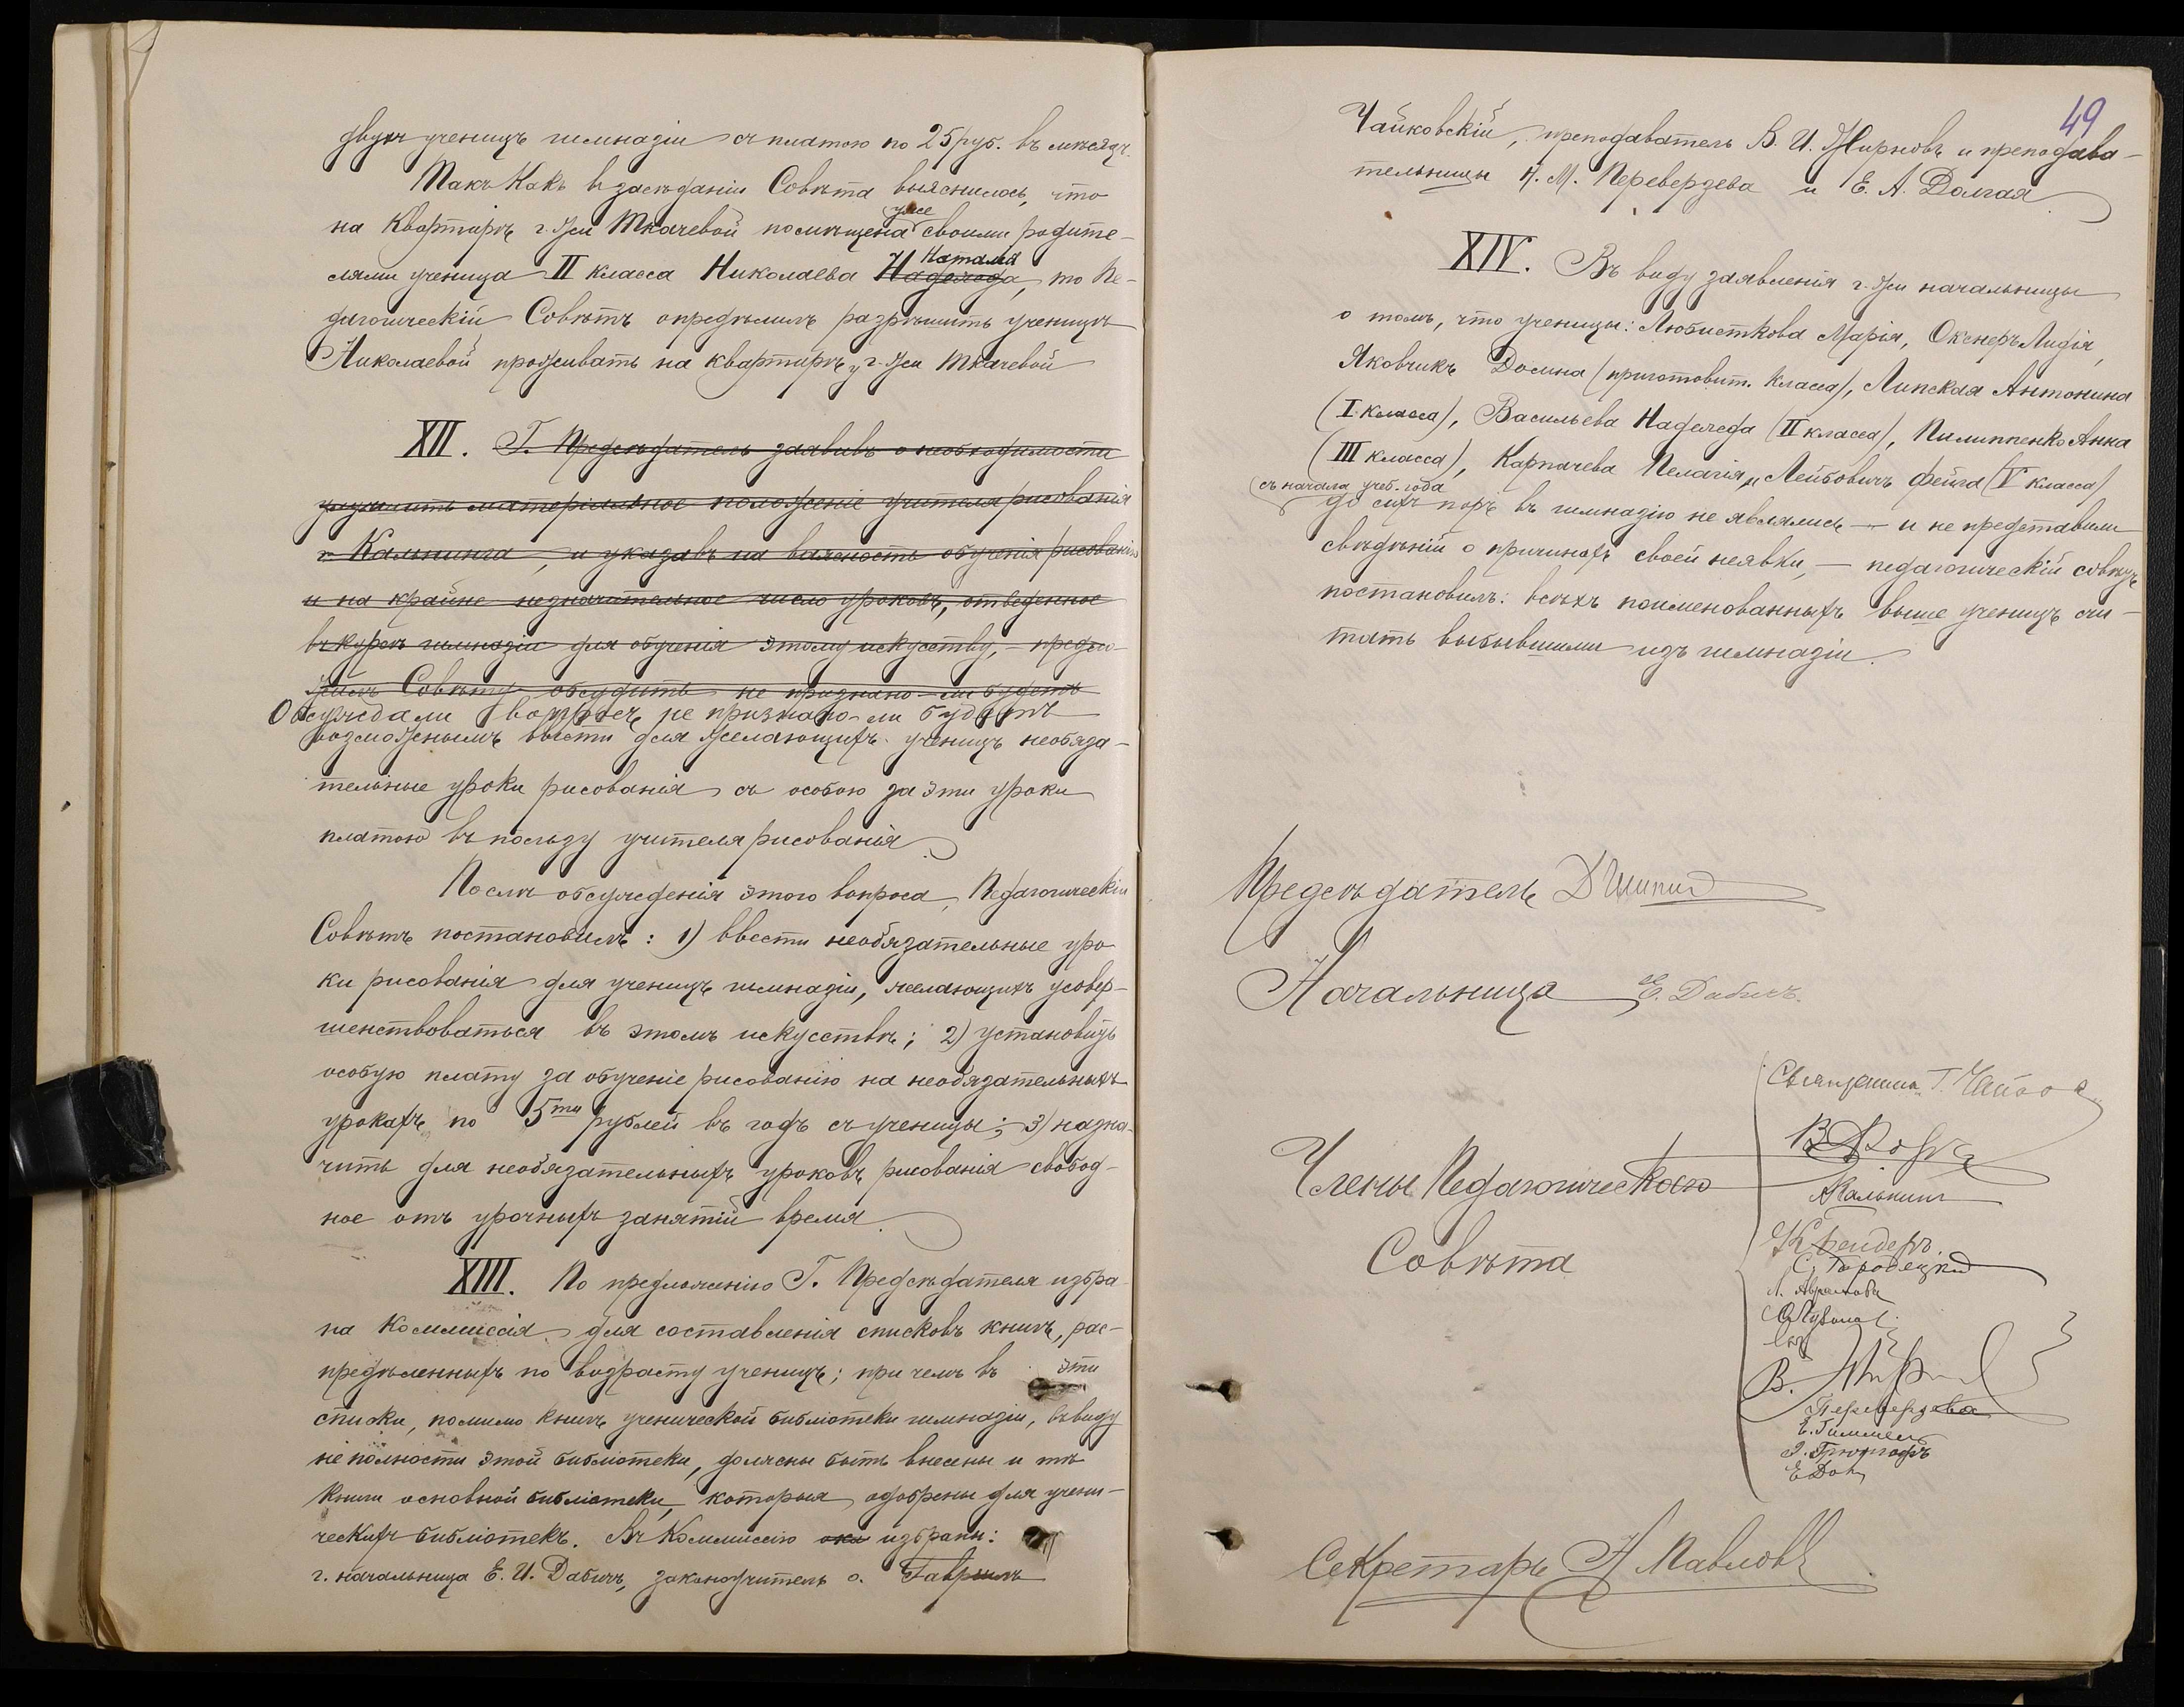 двухъ ученицъ гимназіи съ платою по 25 руб. въ мѣсяцъ.
Такъ какъ въ засѣданіи Совѣта выяснилось, что
на квартирѣ г-жи Ткачевой помѣщена уже своими родите-
лями ученица II класса Николаева Надежда Наталія, то Пе-
дагогическій Совѣтъ опредѣлилъ разрѣшить ученицѣ
Николаевой проживать на квартирѣ у г-жи Ткачевой
XII. Г. Предсѣдатель заявивъ о необходимости
улучшить матеріальное положеніе учителя рисованія
г. Кальнинга, и указавъ на важность обученія рисованію
и на крайне незначительное число уроковъ, отведенное
въ курсѣ гимназіи для обученія этому искусству, – предло-
жилъ Совѣту обсудить не признано-ли будетъ
Обсуждали вопросъ, не признано-ли будетъ
возможнымъ ввести для желающихъ ученицъ необяза-
тельные уроки рисованія съ особою за эти уроки
платою въ пользу учителя рисованія.
Послѣ обсужденія этого вопроса, Педагогическій
Совѣтъ постановилъ: 1) ввести необязательные уро
ки рисованія для ученицъ гимназіи, желающихъ усовер-
шенствоваться въ этомъ искусствѣ; 2) установить
особую плату за обученіе рисованію на необязательныхъ
урокахъ по 5ти рублей въ годъ съ ученицы; 3) назна-
чить для необязательныхъ уроковъ рисованія свобод-
ное отъ урочныхъ занятій время.
XIII. По предложенію Г. Предсѣдателя избра-
на Коммиссія для составленія списковъ книгъ, рас-
предѣленныхъ по возрасту ученицъ; при чемъ въ эти
списки, помимо книгъ ученической библіотеки гимназіи, въ виду
неполности этой библіотеки, должны быть внесены и тѣ
книги основной библіотеки, которыя одобрены для учени-
ческихъ библіотекъ. Въ Коммиссію избраны:
г. начальница Е. И. Дабичъ, законоучитель о. Гавріилъ
49
Чайковскій, преподаватель В. И. Жирновъ и преподава-
тельницы Н. М. Перевердева и Е. А. Долгая.
XIV. Въ виду заявленія г-жи начальницы
о томъ, что ученицы: Любисткова Марія, Окснеръ Лидія,
Яковчикъ Досина (приготовит. класса), Липская Антонина
(I класса), Васильева Надежда (II класса), Пилиппенко Анна
(III класса), Карпачева Пелагія и Лейбовичъ Фейга (V класса)
съ начала учеб. года
до сихъ поръ въ гимназію не являлись – и не представили
свѣдѣній о причинахъ своей неявки, – педагогическій совѣтъ
постановилъ: всѣхъ поименованныхъ выше ученицъ счи-
тать выбывшими изъ гимназіи.
Предсѣдатель
Начальница Е. Дабичъ.
Члены Педагогическаго
Совѣта
Священникъ Г.
А. Кальнинг
С. Городецкій
Л. Абрамова
В.
Перевердева
Е. Гиммель
Е. Дол
Секретарь Н Павловъ